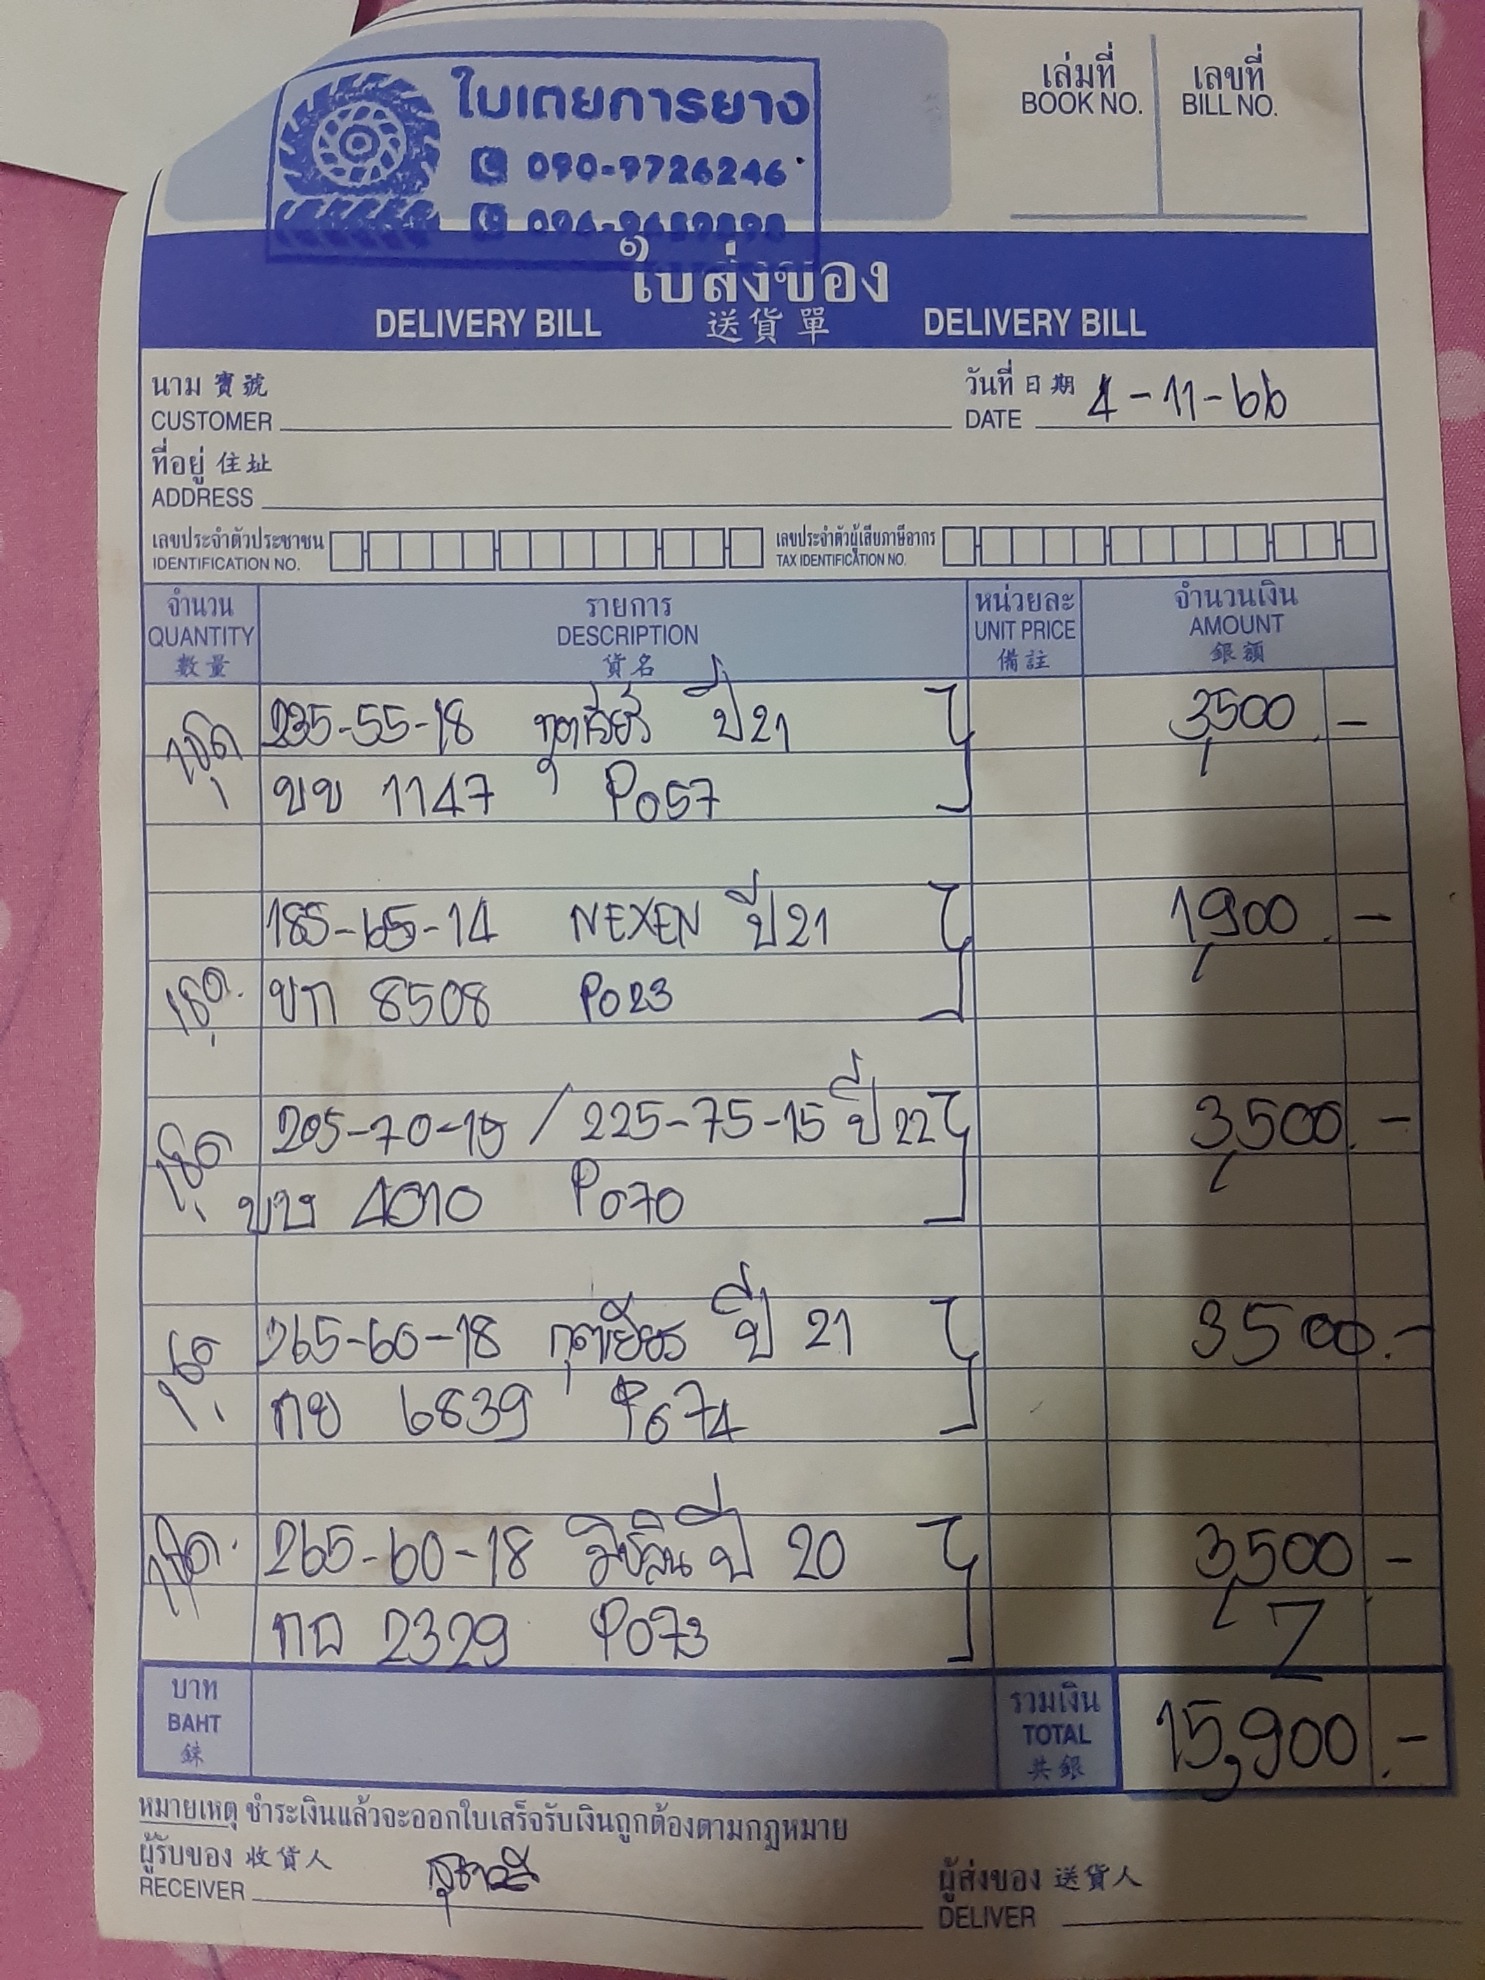 ใบเตยการยาง
090-9726246
เล่มที่ เลขที่
BOOK NO. BILL NO.
ใบส่งของ
DELIVERY BILL 送貨單 DELIVERY BILL
นาม 寶號 วันที่ 日期 4-11-66
CUSTOMER DATE
ที่อยู่ 住址
ADDRESS
เลขประจำตัวประชาชน เลขประจำตัวผู้เสียภาษีอากร
IDENTIFICATION NO. TAX IDENTIFICATION NO.
จำนวน รายการ หน่วยละ จำนวนเงิน
QUANTITY DESCRIPTION UNIT PRICE AMOUNT
數量 貨名 備註 銀額
1ชุด 235-55-18 ปี 21 3,500 .-
ขข 1147 P057
185-65-14 NEXEN ปี 21 1,900 .-
1ชุด. ขก 8508 P023
1ชุด 205-70-15 / 225-75-15 ปี 22 3,500 .-
4010 P070
1ชุด 265-60-18 ปี 21 3500 .-
กย 6839 P074
1ชุด. 265-60-18 มิชลิน ปี 20 3,500 .-
2329 P073
บาท รวมเงิน
BAHT TOTAL 15,900 .-
銖 共銀
หมายเหตุ ชำระเงินแล้วจะออกใบเสร็จรับเงินถูกต้องตามกฎหมาย
ผู้รับของ 收貨人 ผู้ส่งของ 送貨人
RECEIVER DELIVER